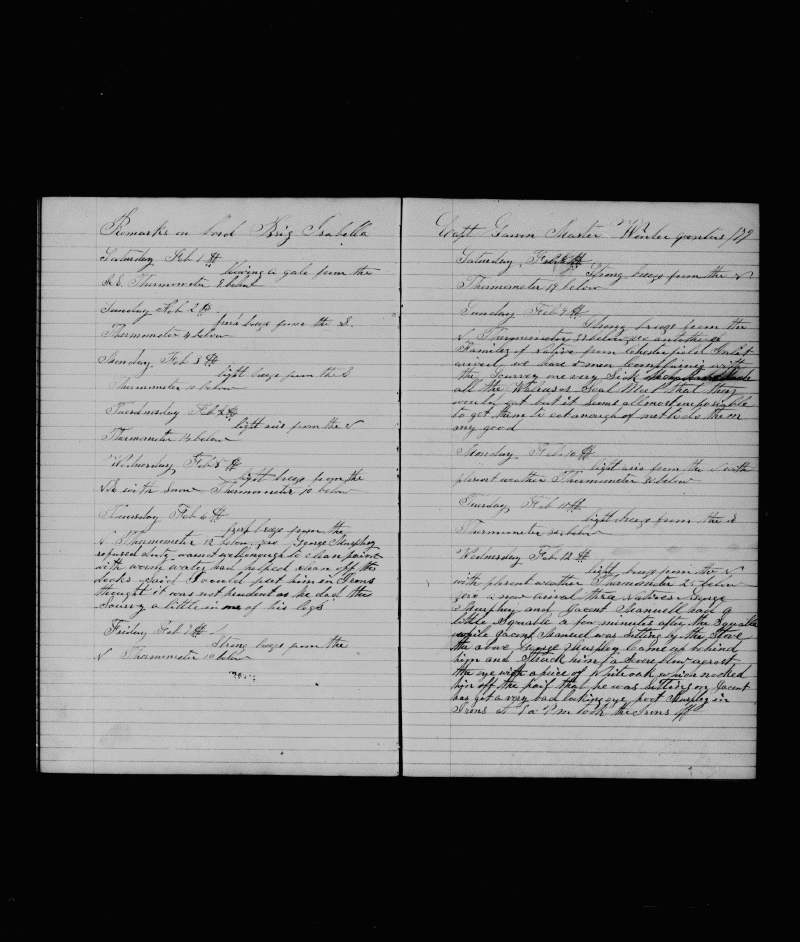 Remarks on bord Brig Isabella
Saturday Feb 1st
blowing a gale from the
S.E. Thermometer 9 below
Sunday Feb 2d
fresh breeze from the S.
Thermometer 4 below
Monday Feb 3d
light breeze from the S
Thermometer 10 below
Feb 4th
light airs from the N
Thermometer below
Wednesday Feb 5th
light breeze from the
with Snow Thermometer 10 below
Thursday Feb 6th
from the
N Thermometer 12 below George Murphey
refused duty wasnt well enough to clean paint
with worm water had helped clean off the
decks Said I could put him in Irons
thought it was not prudent as he had the
Scurvy a little in one of his legs
Friday Feb 7th
Strong breeze from the
N Thermometer 10 below
Capt Master Winter quarters /79
Saturday Feb 8th
Strong breeze from the N
Thermometer 19 below
Sunday Feb 9th
Strong breeze from the
N Thermometer below another
Familey of native from Chesterfield Inlet
arived we have men complaining with
the Scurvey one very Sick
all the Walrus or Seal Meet that they
would eat but it seems allmost imposable
to get them to eat anough of
my good
Monday Feb 10th
light airs from the with
plesent weather Thermometer below
Tuesday Feb 11th
light breeze from the
Thermometer below
Wednesday Feb 12th
light breeze from the N
with plesent weather Thermometer 25 below
a new arival three Natives George
Murphey and Jacent Manuell had a
little Squable a few minutes after the Squable
while Jacent Manuel was Setting by the Stove
the above George Murphey Came up behind
him and Struck him a Severe blow acrost
the eye with a piece of Whit oak which nocked
him off the pail that he was Setting on Jacent
has got a very bad looking eye poot Murphey in
Irons at P.m. took the Irons off